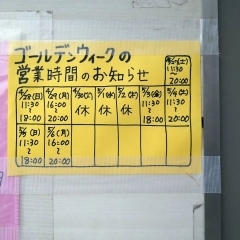 ゴールデンウィークの
営業時間のお知らせ
4/27(土)
11:30
〜
20:00
4/28(日)
11:30
〜
18:00
4/29(月)
16:00
〜
20:00
4/30(火)
休
5/1(水)
休
5/2(木)
休
5/3(金)
11:30
〜
18:00
5/4(土)
11:30
〜
20:00
5/5(日)
11:30
〜
18:00
5/6(月)
16:00
〜
20:00